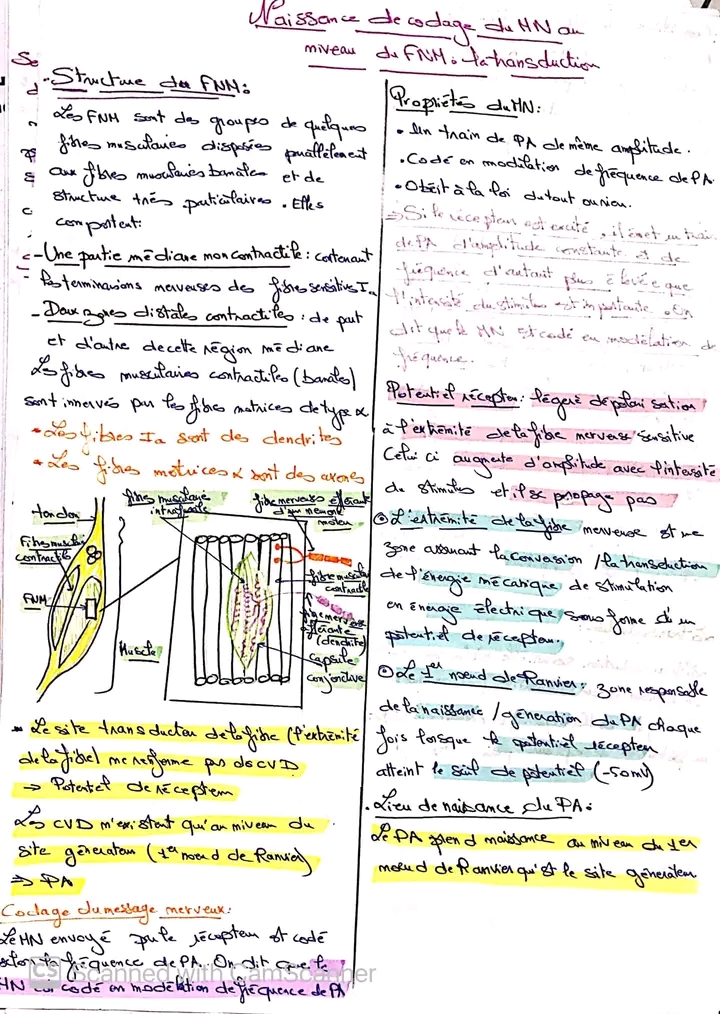 Naissance de codage du MN au
niveau du FNM : la transduction
Se
d
- Structure des FNM :
Les FNM sont des groupes de quelques
fibres musculaires disposées parallèlement
aux fibres musculaires banales et de
structure très particulaires. Elles
comportent :
- Une partie médiane non contractile : contenant
les terminaisons nerveuses des fibres sensitives Ia
- Deux zones distales contractiles : de part
et d'autre de cette région médiane
Les fibres musculaires contractiles (banales)
sont innervés par les fibres motrices de type α
* Les fibres Ia sont des dendrites
* Les fibres motrices α sont des axones
tendon
Fibres musculaires
contractiles
FNM
Muscle
fibres musculaire
intrafusale
fibre nerveuse efférente
d'un neurone
moteur
fibre musculaire
contractile
fibre nerveuse
afférente
(dendrite)
capsule
conjonctive
* Le site transducteur de la fibre (l'extrémité
de la fibre) ne renferme pas des CVD
→ Potentiel de récepteur
Les CVD n'existent qu'au niveau du
site générateur (1er nœud de Ranvier)
⇒ PA
Codage du message nerveux :
Le MN envoyé par le récepteur est codé
selon la fréquence de PA. On dit que le
MN est codé en modélation de fréquence de PA
CS Scanned with CamScanner
Propriétés du MN :
• Un train de PA de même amplitude.
• Codé en modilation de fréquence de PA.
• Obéit à la loi du tout ou rien.
⇒ Si le récepteur est excité, il émet un train
de PA d'amplitude constante et de
fréquence d'autant plus élevée que
l'intensité du stimulus est importante. On
dit que le MN est codé en modélation de
fréquence.
Potentiel récepteur : légère dépolarisation
à l'extrémité de la fibre nerveuse sensitive
Celui ci augmente d'amplitude avec l'intensité
du stimulus et il se propage pas
⊙ L'extrémité de la fibre nerveuse est une
zone assurant la conversion / la transduction
de l'énergie mécanique de stimulation
en énergie électrique sous forme d'un
potentiel de récepteur.
⊙ Le 1er nœud de Ranvier : zone responsable
de la naissance / génération du PA chaque
fois lorsque le potentiel récepteur
atteint le seuil de potentiel (-50mV)
. Lieu de naissance du PA :
Le PA prend naissance au niveau du 1er
nœud de Ranvier qu'est le site générateur